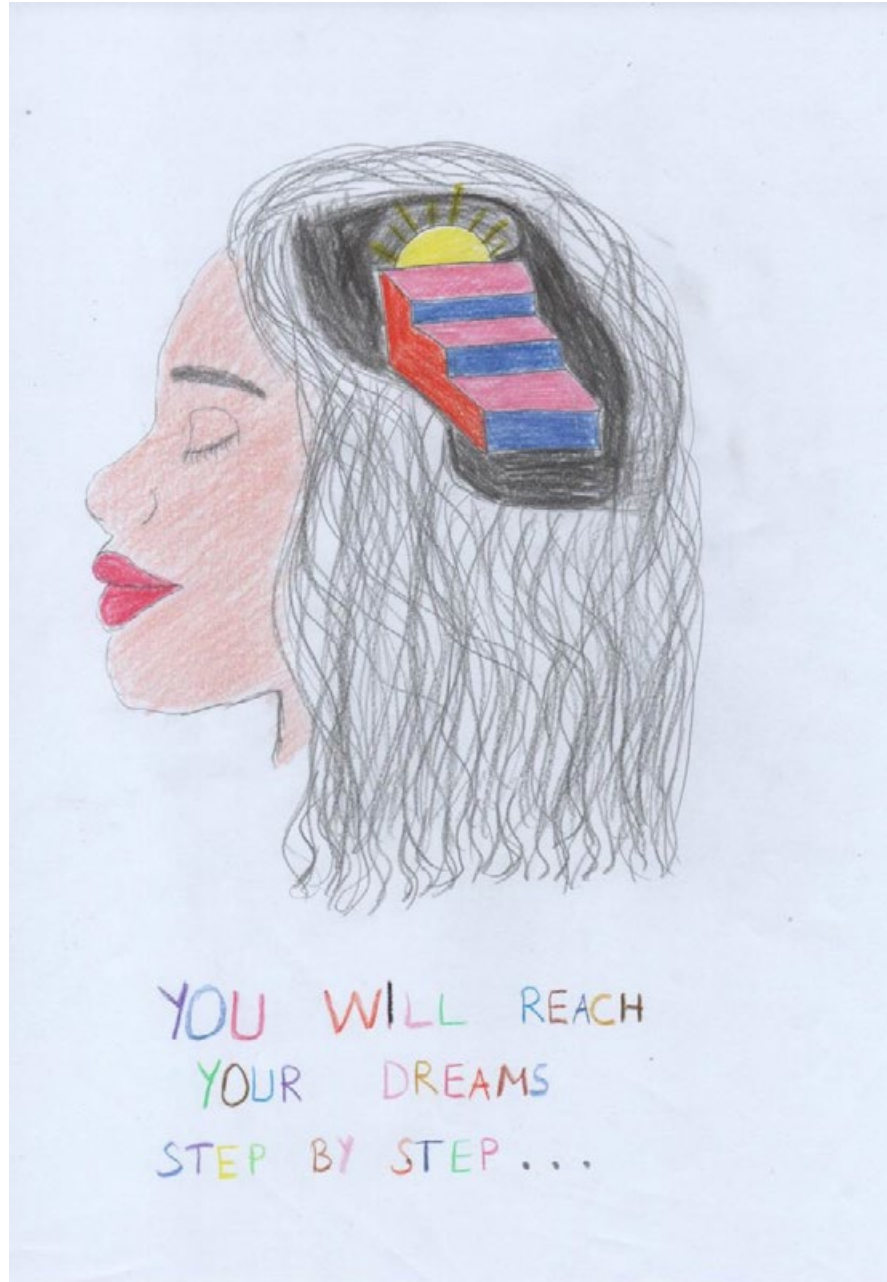 YOU WILL REACH
YOUR DREAMS
STEP BY STEP...